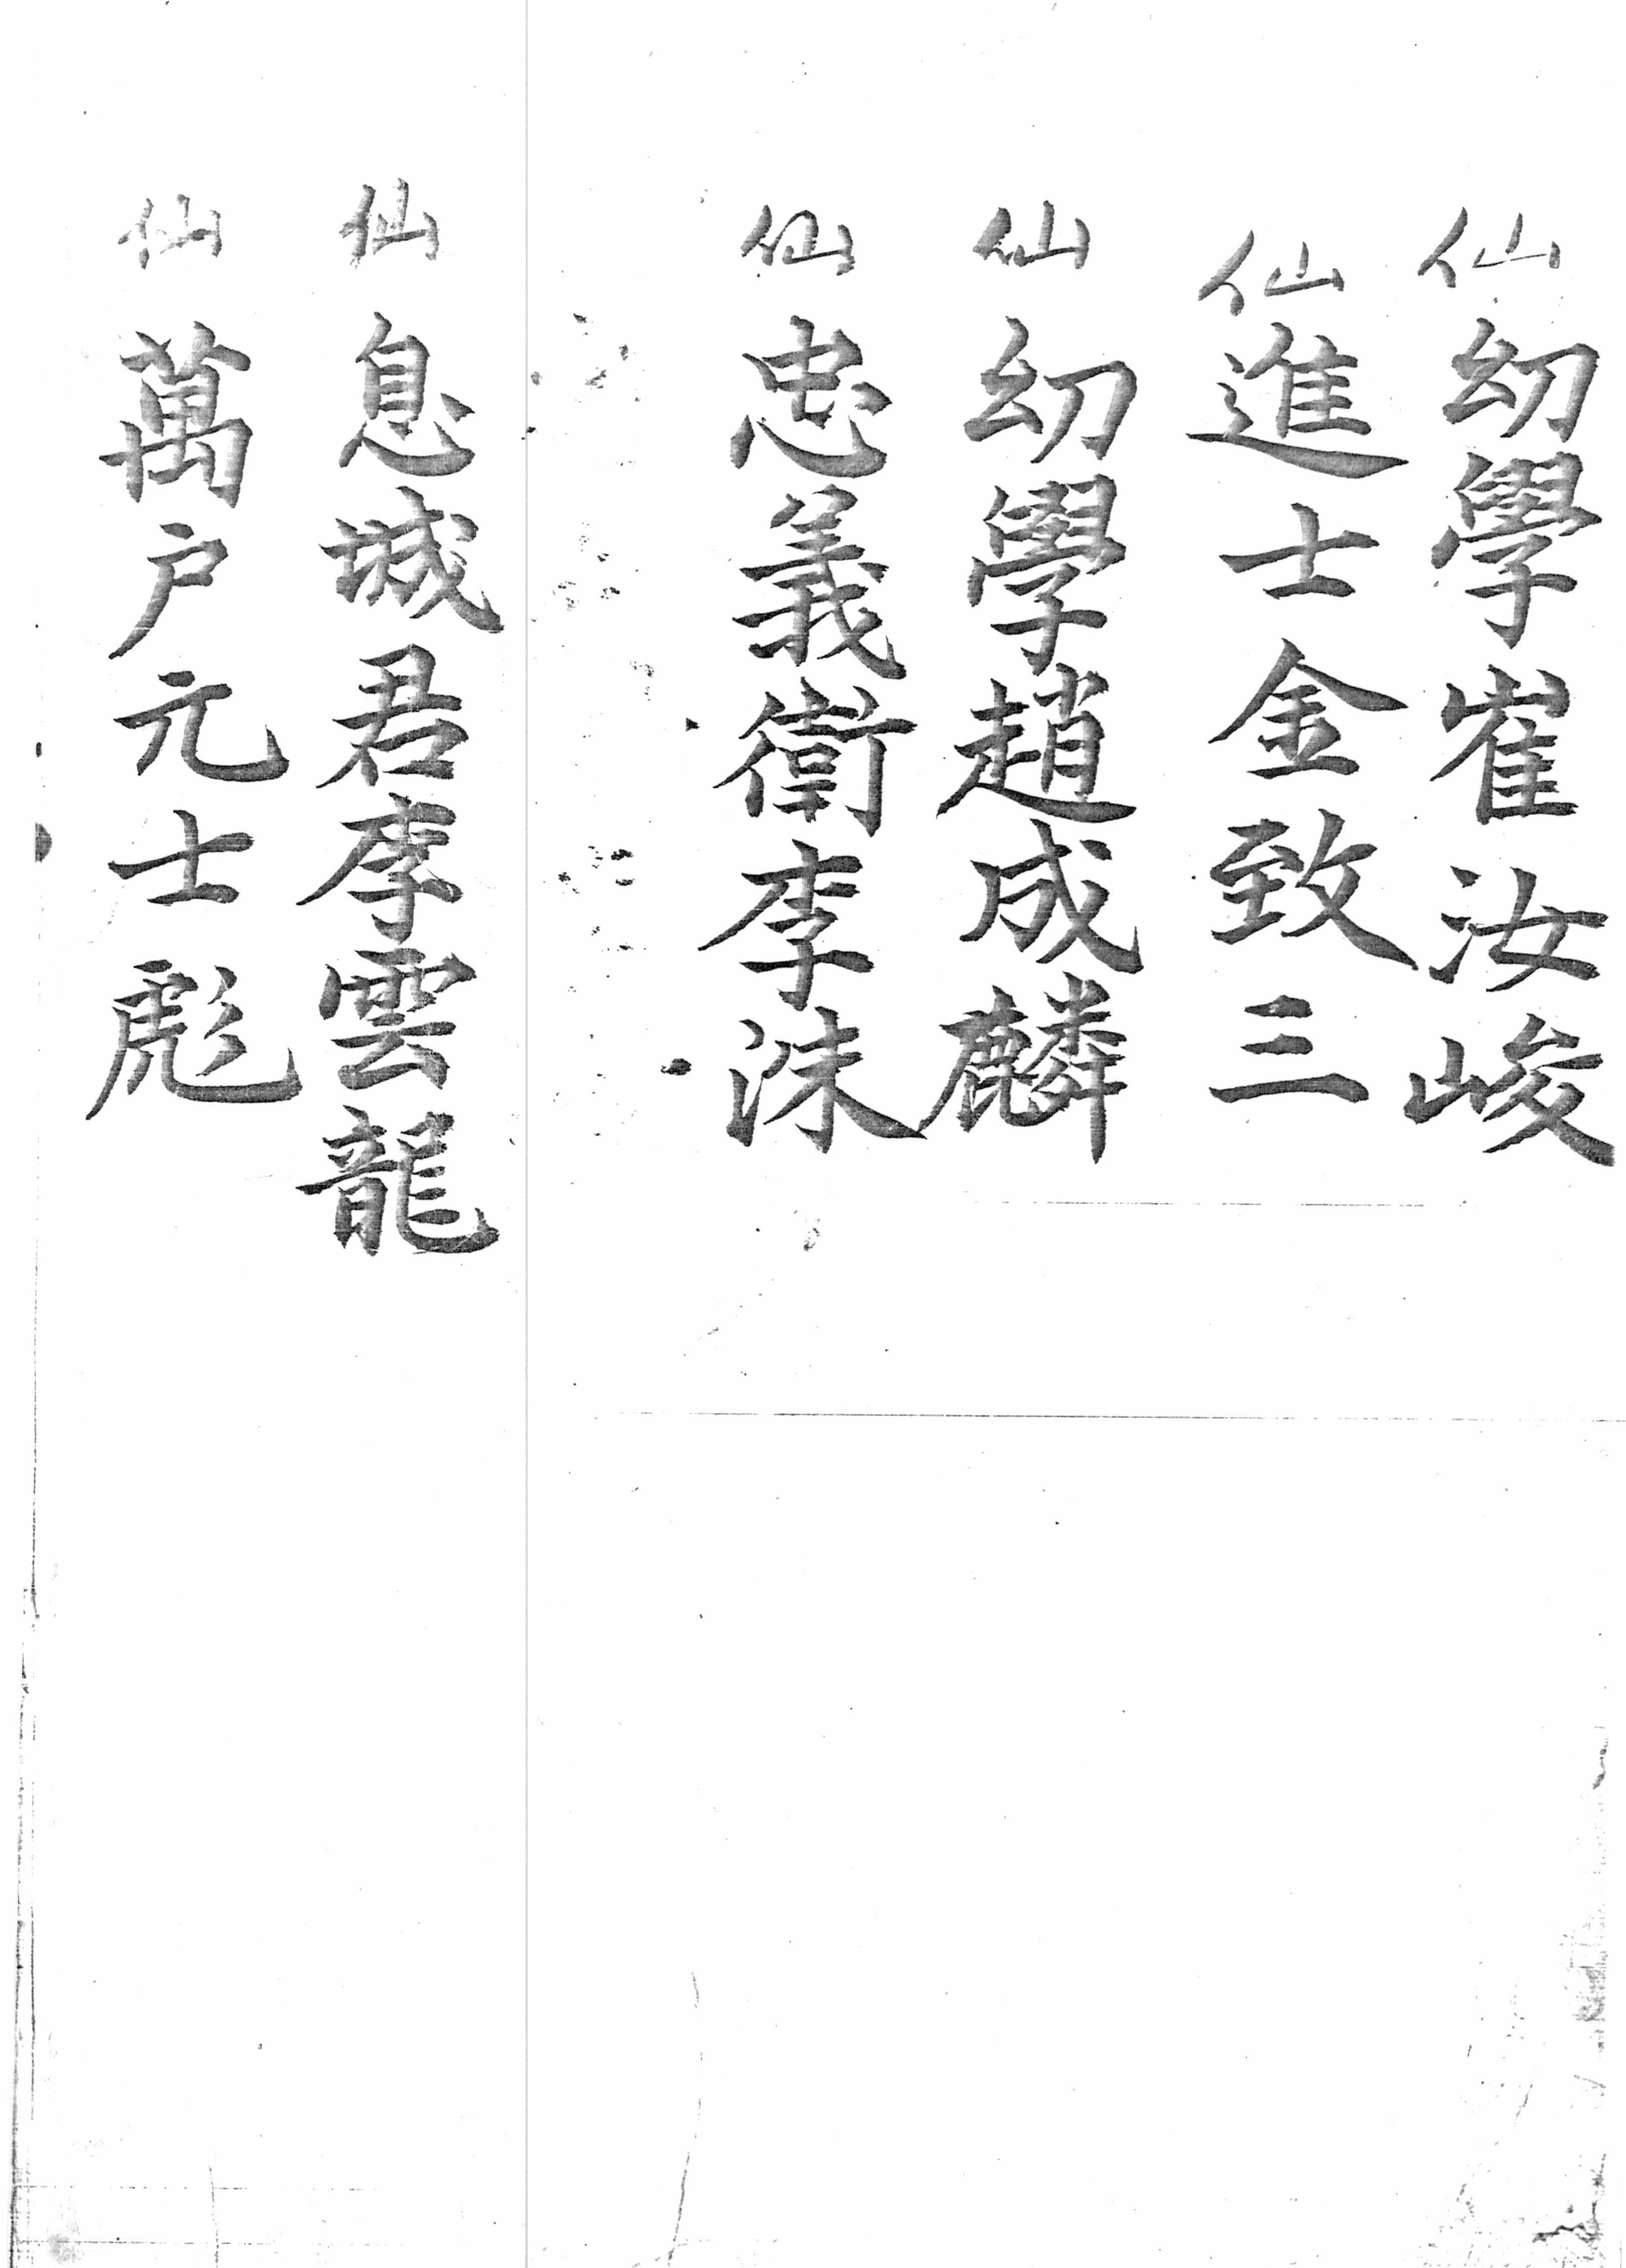 仙 幼學崔汝峻
仙 進士金致三
仙 幼學趙成麟
仙 忠義衛李洙
仙 息城君李雲龍
仙 萬户元士彪